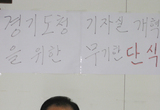 경기도청 기자실 개혁
을 위한 무기한 단식